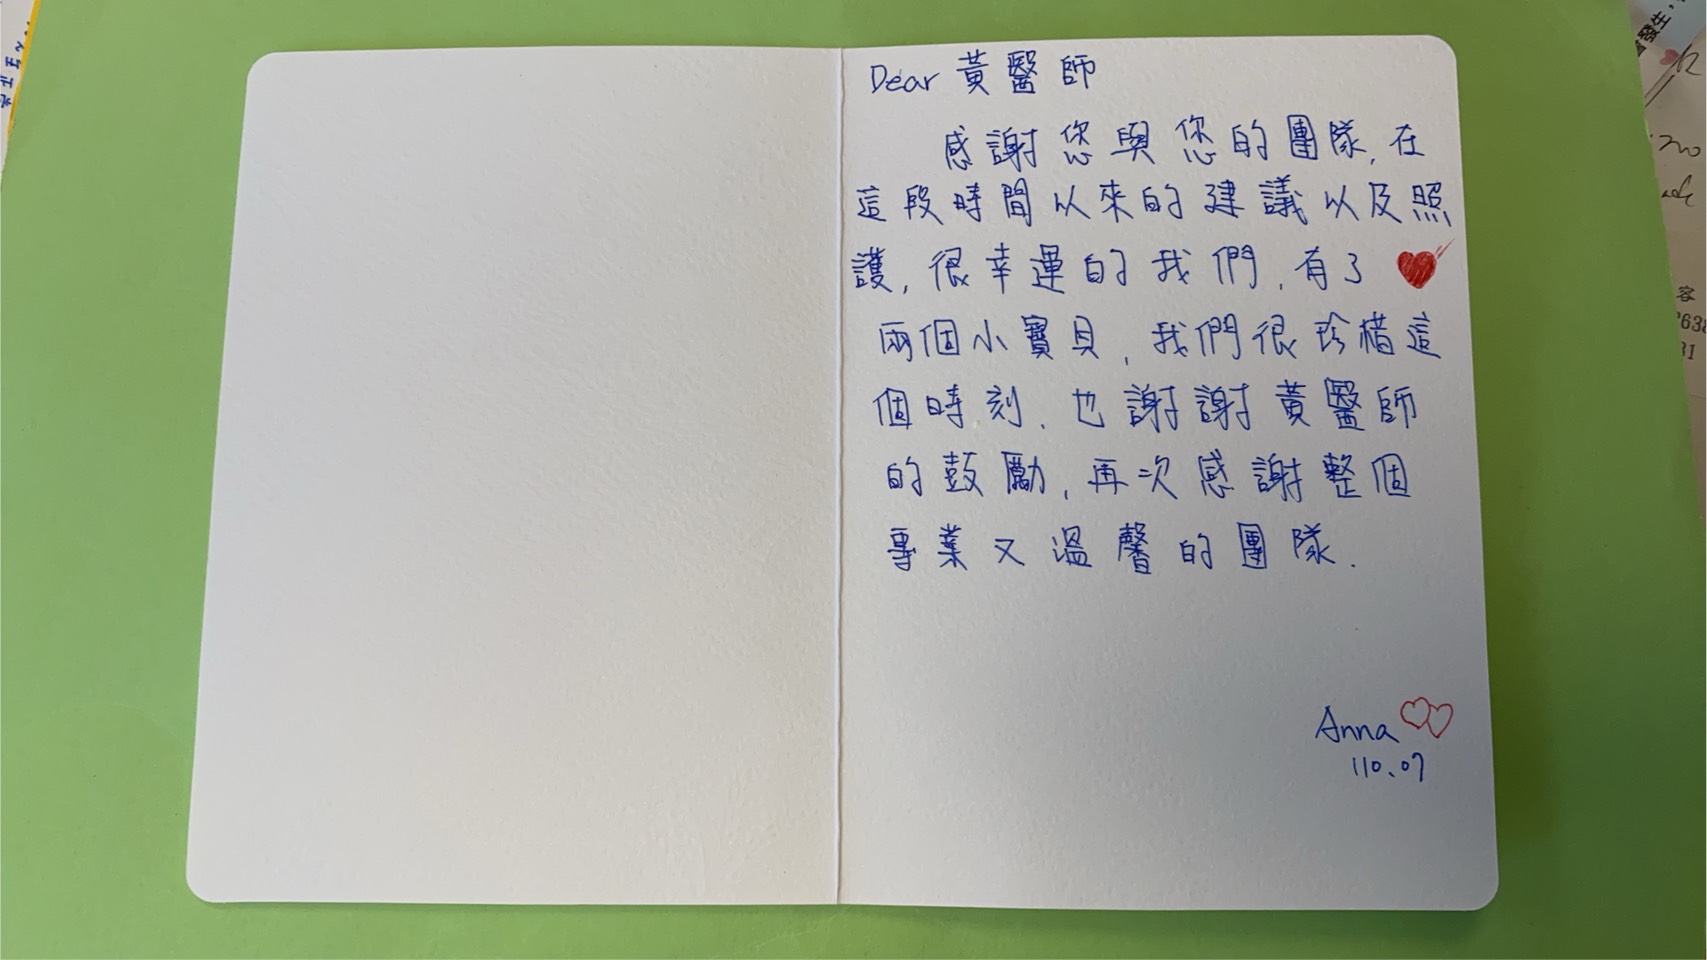 Dear 黃醫師
感謝您與您的團隊,在
這段時間以來的建議以及照
護,很幸運的我們,有了
兩個小寶貝,我們很珍惜這
個時刻、也謝謝黃醫師
的鼓勵,再次感謝整個
專業又溫馨的團隊.
Anna
110.07
發生,
no
容
7638